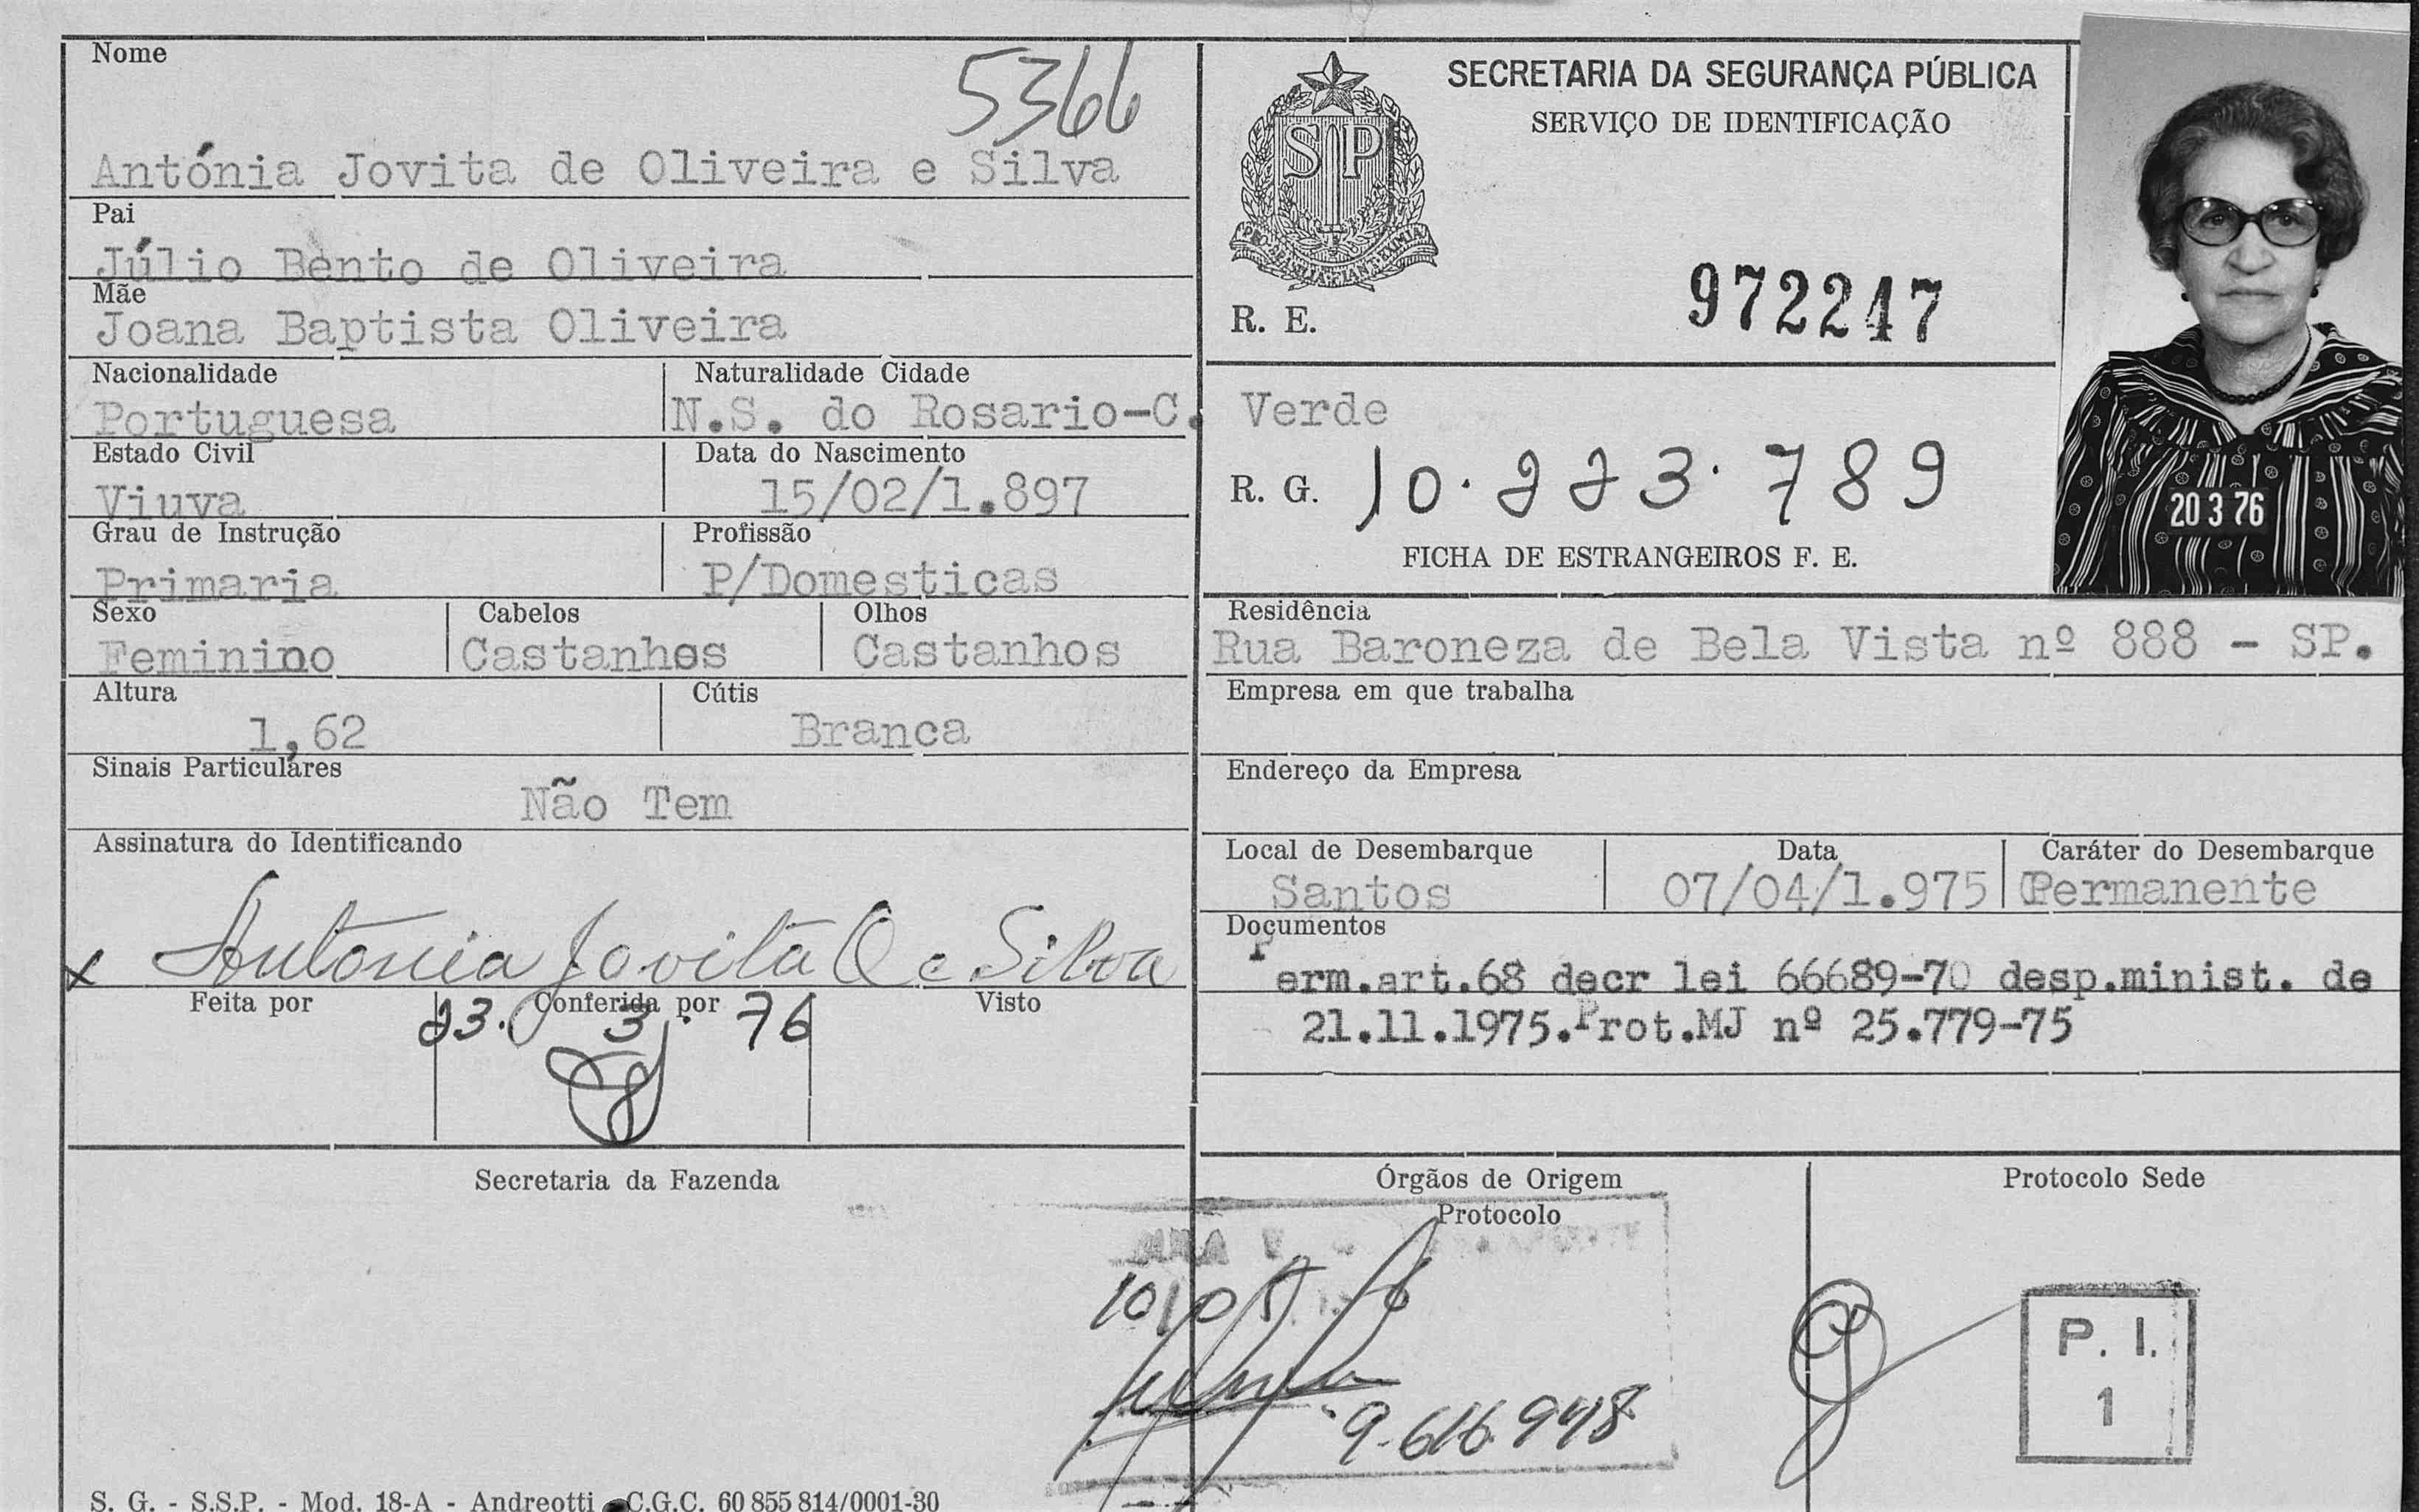 Nome
5366
Antónia Jovita de Oliveira e Silva
Pai
Júlio Bento de Oliveira
Mãe
Joana Baptista Oliveira
Nacionalidade
Portuguesa
Naturalidade Cidade
N.S. do Rosario-C. Verde
Estado Civil
Viuva
Data do Nascimento
15/02/1.897
Grau de Instrução
Primaria
Profissão
P/Domesticas
Sexo
Feminino
Cabelos
Castanhos
Olhos
Castanhos
Altura
1,62
Cútis
Branca
Sinais Particulares
Não Tem
Assinatura do Identificando
x Antónia Jovita O e Silva
Feita por
Conferida por
Visto
23. 3. 76
Secretaria da Fazenda
S. G. - S.S.P. - Mod. 18-A - Andreotti - C.G.C. 60 855 814/0001-30
SECRETARIA DA SEGURANÇA PÚBLICA
SERVIÇO DE IDENTIFICAÇÃO
SP
R. E. 972247
R. G. 10.223.789
FICHA DE ESTRANGEIROS F. E.
20 3 76
Residência
Rua Baroneza de Bela Vista nº 888 - SP.
Empresa em que trabalha
Endereço da Empresa
Local de Desembarque
Santos
Data
07/04/1.975
Caráter do Desembarque
Permanente
Documentos
Perm.art.68 decr lei 66689-70 desp.minist. de
21.11.1975.Prot.MJ nº 25.779-75
Órgãos de Origem
Protocolo
9.616.948
Protocolo Sede
P. I.
1